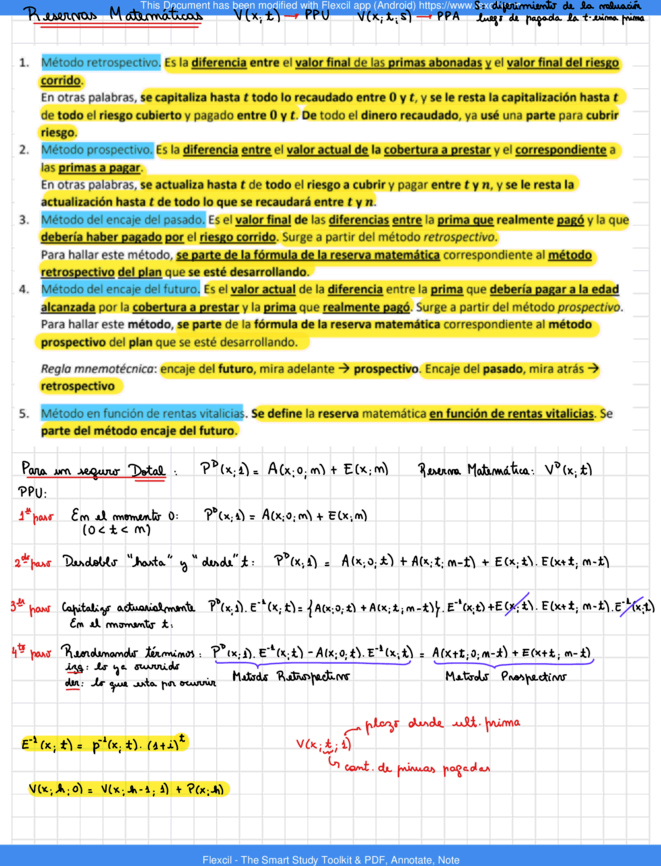 This Document has been modified with Flexcil app (Android) https://www.
Reservas Matemáticas V(x;t) → PPU V(x;t;s) → PPA S: diferimiento de la valuación
luego de pagada la t-esima prima
1. Método retrospectivo. Es la diferencia entre el valor final de las primas abonadas y el valor final del riesgo
corrido.
En otras palabras, se capitaliza hasta t todo lo recaudado entre 0 y t, y se le resta la capitalización hasta t
de todo el riesgo cubierto y pagado entre 0 y t. De todo el dinero recaudado, ya usé una parte para cubrir
riesgo.
2. Método prospectivo. Es la diferencia entre el valor actual de la cobertura a prestar y el correspondiente a
las primas a pagar.
En otras palabras, se actualiza hasta t de todo el riesgo a cubrir y pagar entre t y n, y se le resta la
actualización hasta t de todo lo que se recaudará entre t y n.
3. Método del encaje del pasado. Es el valor final de las diferencias entre la prima que realmente pagó y la que
debería haber pagado por el riesgo corrido. Surge a partir del método retrospectivo.
Para hallar este método, se parte de la fórmula de la reserva matemática correspondiente al método
retrospectivo del plan que se esté desarrollando.
4. Método del encaje del futuro. Es el valor actual de la diferencia entre la prima que debería pagar a la edad
alcanzada por la cobertura a prestar y la prima que realmente pagó. Surge a partir del método prospectivo.
Para hallar este método, se parte de la fórmula de la reserva matemática correspondiente al método
prospectivo del plan que se esté desarrollando.
Regla mnemotécnica: encaje del futuro, mira adelante → prospectivo. Encaje del pasado, mira atrás →
retrospectivo
5. Método en función de rentas vitalicias. Se define la reserva matemática en función de rentas vitalicias. Se
parte del método encaje del futuro.
Para un seguro Dotal: Pᴰ(x;1) = A(x;0;m) + E(x;m) Reserva Matemática: Vᴰ(x;t)
PPU:
1er paso En el momento 0: Pᴰ(x;1) = A(x;0;m) + E(x;m)
(0<t<m)
2do paso Desdoblo "hasta" y "desde" t: Pᴰ(x;1) = A(x;0;t) + A(x;t;m-t) + E(x;t). E(x+t;m-t)
3er paso Capitalizo actuarialmente Pᴰ(x;1). E⁻¹(x;t) = {A(x;0;t) + A(x;t;m-t)}. E⁻¹(x;t) + E(x;t). E(x+t;m-t). E⁻¹(x;t)
En el momento t:
4to paso Reordenando términos: Pᴰ(x;1). E⁻¹(x;t) - A(x;0;t). E⁻¹(x;t) = A(x+t;0;m-t) + E(x+t;m-t)
izq: lo ya ocurrido
der: lo que esta por ocurrir Metodo Retrospectivo Metodo Prospectivo
E⁻¹(x;t) = p⁻¹(x;t). (1+i)ᵗ
V(x;t;1) plazo desde ult. prima
cant. de primas pagadas
V(x;h;0) = V(x;h-1;1) + P(x;h)
Flexcil - The Smart Study Toolkit & PDF, Annotate, Note